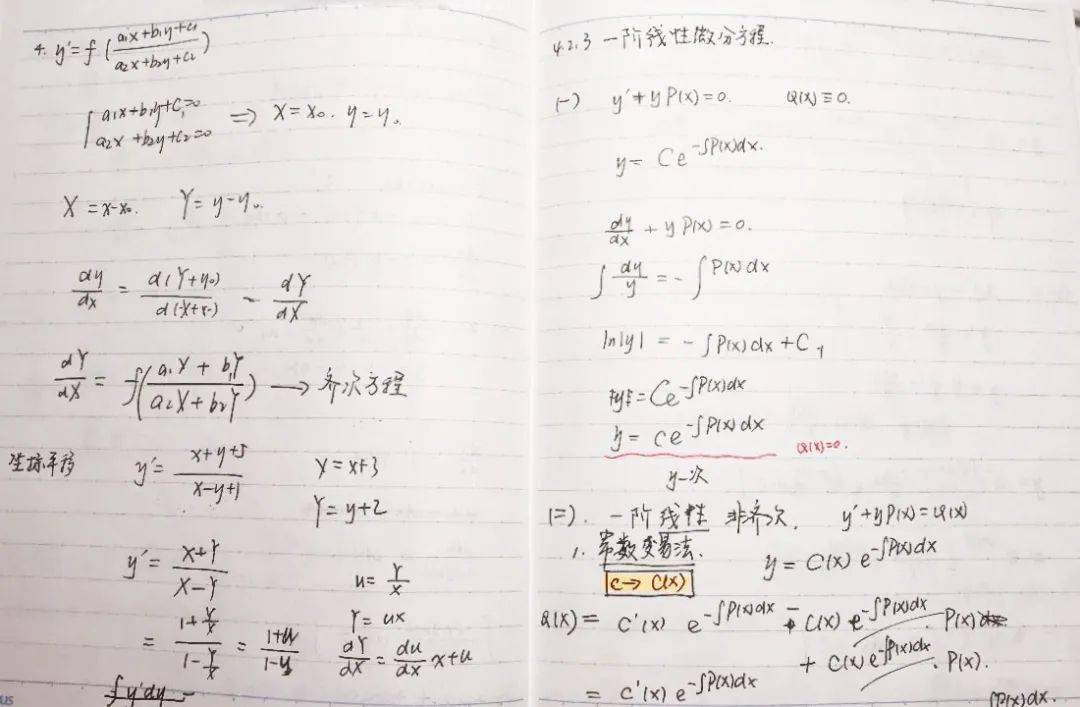 4. y'= f (a₁x+b₁y+c₁ / a₂x+b₂y+c₂)
{ a₁x+b₁y+C₁=0
a₂x+b₂y+C₂=0 ⟹ x=x₀. y=y₀
X = x-x₀. Y= y-y₀.
dy/dx = d(Y+y₀)/d(X+x₀) - dY/dX
dY/dX = f(a₁X + b₁Y / a₂X + b₂Y) ⟶ 齐次方程
坐标平移 y'= x+y+5 / x-y+1 X=x+3
Y=y+2
y'= X+Y / X-Y u= Y/X
= 1+Y/X / 1-Y/X = 1+u / 1-u Y= ux
dY/dX = du/dx x+u
∫y'dy
4.2.3 一阶线性微分方程.
(一) y'+yP(x)=0. Q(x)≡0.
y= Ce^{-∫P(x)dx}.
dy/dx + yP(x)=0.
∫ dy/y = -∫P(x)dx
ln|y| = -∫P(x)dx+C₁
y= Ce^{-∫P(x)dx}
y= ce^{-∫P(x)dx} Q(x)=0.
y一次
(二). 一阶线性 非齐次. y'+yP(x)=Q(x)
1. 常数变易法. y= C(x) e^{-∫P(x)dx}
C→ C(x)
Q(x)= C'(x) e^{-∫P(x)dx} - C(x) e^{-∫P(x)dx}. P(x)
+ C(x)e^{-∫P(x)dx}. P(x).
= C'(x) e^{-∫P(x)dx}
∫P(x)dx.